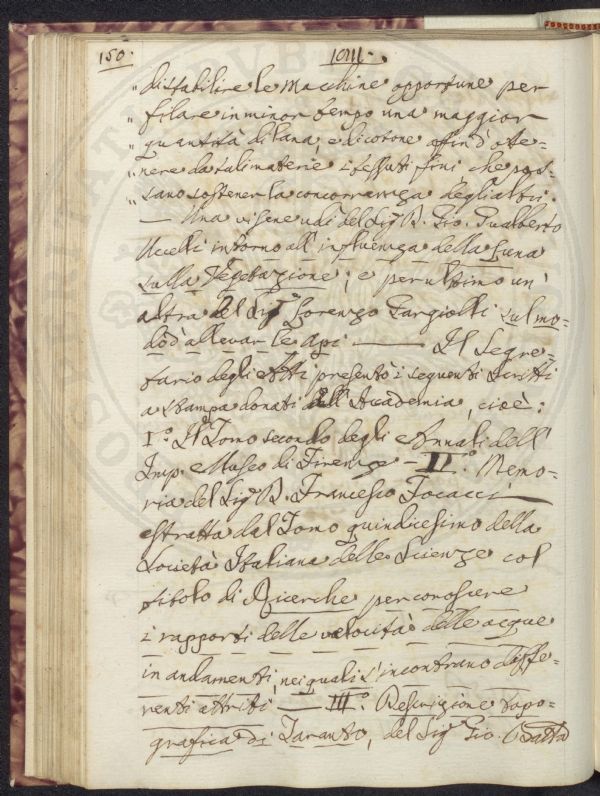 150.
1811.
" di stabilire le Macchine opportune per
" filare in minor tempo una maggior
" quantità di lana, e di cotone affin d'otte=
" nere da tali materie i tessuti fini che pos=
" sano sostener la concorrenza degli altri.
— Una ne udì del Sig.r D. Gio. Gualberto
Uccelli intorno all'influenza della Luna
sulla Vegetazione; e per ultimo un'
altra del Sig.r Lorenzo Gargiolli sul mo=
do d'allevar le Api — Il Segre=
tario degli Atti presentò i seguenti scritti
a stampa donati all'Accademia, cioè:
I.o Il Tomo secondo degli Annali dell'
Imp. Museo di Firenze — II.o Memo=
ria del Sig.r D. Francesco Focacci
estratta dal Tomo quindicesimo della
Società Italiana delle Scienze col
titolo di Ricerche per conoscere
i rapporti delle velocità delle acque
in andamenti, nei quali s'incontrano diffe=
renti attriti — III.o Descrizione topo=
grafica di Taranto, del Sig.r Gio. Batta